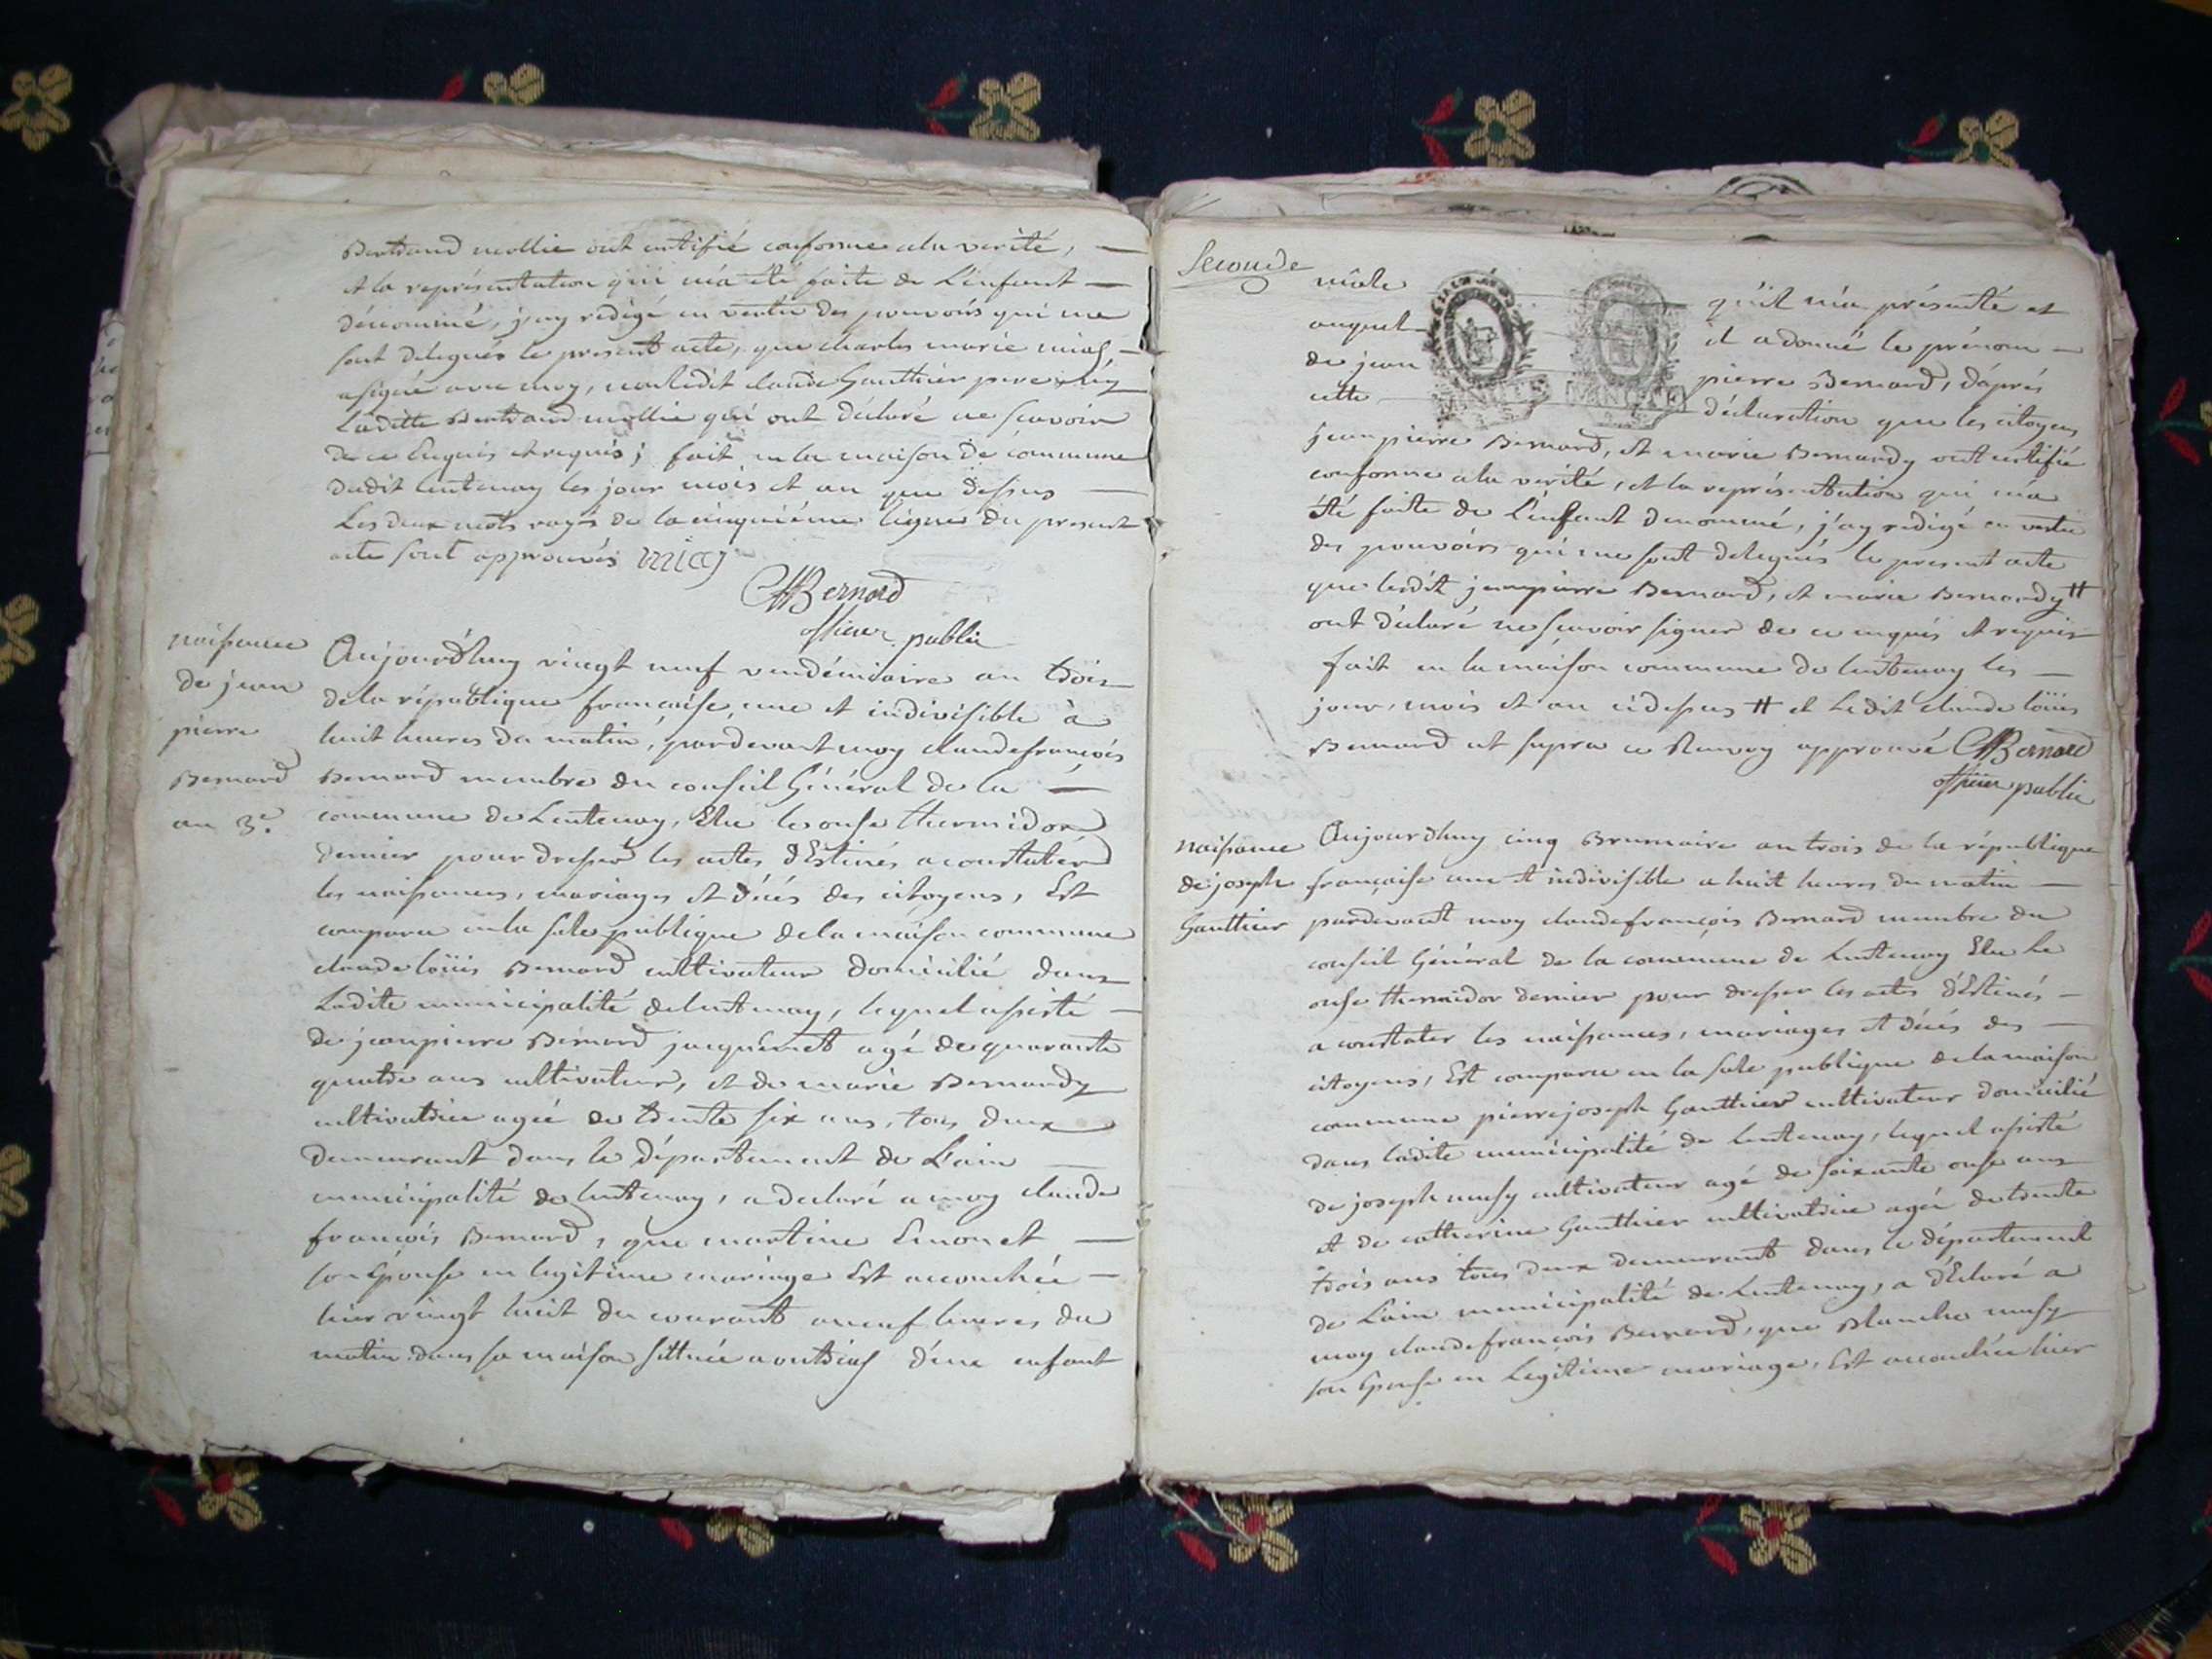 Bertrand mollie ont certifié conforme ala verité,
et la représentation qui m'a été faite de L'enfant
dénommé, j'ay redigé en vertu des pouvoirs qui me
sont delegués le present acte, que charles marie
a signé avec moy, claude Gauthier pere ny
Laditte Bertrand mollie qui ont déclaré ne scavoir
de ce Enquis et requis; fait en la maison de commune
dudit lentenay les jour mois et an que dessus
Les deux mots rayés de la cinquiéme ligne du present
acte sont approuvés
Bernard
officier public
naissance
de jean
pierre
Bernard
an 3e.
Aujourdhuy vingt neuf vendémiaire an trois
dela république française, une et indivisible à
huit heures du matin, pardevant moy claudefrançois
Bernard membre du conseil Général de la
commune de Lentenay, Elu le onse thermidor
dernier pour dresser les actes d'Estinés a constater
les naissances, mariages et décés des citoyens, Est
comparu en la sale publique dela maison commune
claude loüis Bernard cultivateur domicilié dans
Ladite municipalité de lentenay, lequel assisté
de jeanpierre Bernard jacquemet agé de quarante
quatre ans cultivateur, et de marie Bernardy
cultivatrice agée de trente six ans, tous deux
demeurant dans le département de L'ain
municipalité de lentenay, a declaré a moy claude
françois Bernard, que martine Emonet
son Epouse en legitime mariage Est accouchée
hier vingt huit du courant a neuf heures du
matin dans sa maison sittuée a outriaf d'un enfant
Seconde
mâle qu'il m'a présenté et
auquel il a donné le prénom
de jean pierre Bernard, d'aprés
cette déclaration que les citoyens
jeanpierre Bernard, et marie Bernardy ont certifié
conforme ala verité, et la représentation qui m'a
été faite de L'enfant denommé, j'ay redigé en vertu
des pouvoirs qui me sont delegués le present acte
que lesdit jeanpierre Bernard, et marie Bernardy #
ont déclaré ne scavoir signer de ce enquis et requis
fait en la maison commune de lentenay les
jour, mois et an cidessus # et Ledit claude loüis
Bernard ut supra ce Renvoy approuvé Bernard
officier public
naissance
de joseph
Gauthier
Aujourdhuy cinq Brumaire an trois de la république
française une et indivisible a huit heures du matin
pardevant moy claudefrançois Bernard membre du
conseil Général de la commune de Lentenay Elu Le
onse thermidor dernier pour dresser les actes d'Estinés
a constater les naissances, mariages et décés des
citoyens, Est comparu en la sale publique de la maison
commune pierrejoseph Gauthier cultivateur domicilié
dans ladite municipalité de Lentenay, lequel assisté
de joseph musy cultivateur agé de soixante onse ans
et de catherine Gauthier cultivatrice agée de trente
trois ans tous deux demeurant dans le département
de L'ain municipalité de Lentenay, a d'Eclaré a
moy claudefrançois Bernard, que Blanche musy
son Epouse en Legitime mariage, Est accouchée hier